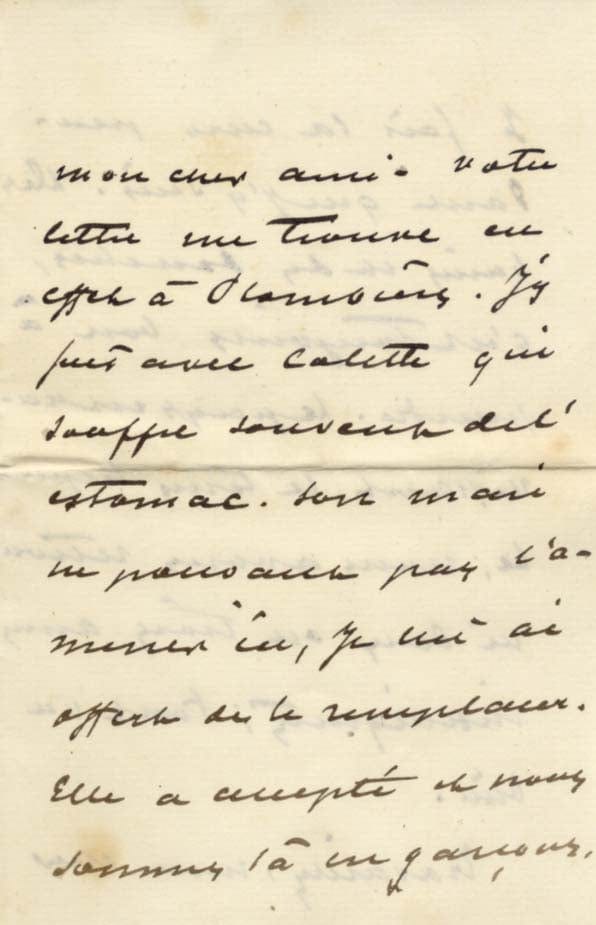 mon cher ami. votre
lettre me trouve en
effet à Plombières. J'y
suis avec Colette qui
souffre souvent de l'
estomac. son mari
ne pouvant pas l'a-
mener ici, je lui ai
offert de le remplacer.
Elle a accepté et nous
sommes là en garçons.